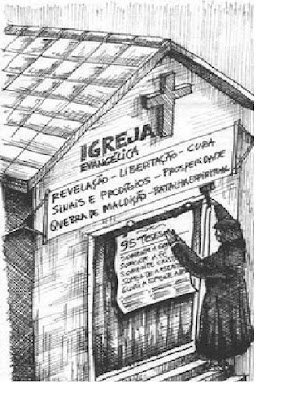 IGREJA
EVANGÉLICA
REVELAÇÃO - LIBERTAÇÃO - CURA
SINAIS E PRODÍGIOS - PROSPERIDADE
QUEBRA DE MALDIÇÃO - BATALHA ESPIRITUAL
95 TESES
SOMENTE A
SOMENTE A
SOMENTE